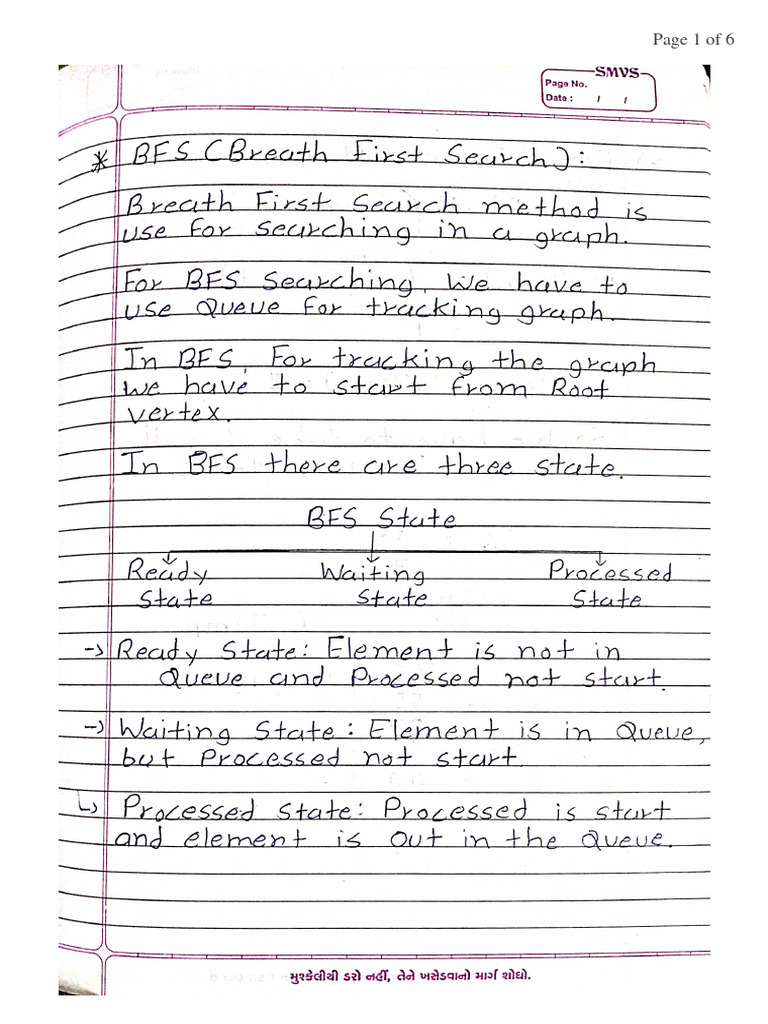 Page 1 of 6
SMVS
Page No.
Date : / /
* BFS (Breath First Search) :
Breath First Search method is
use for searching in a graph.
For BFS Searching, We have to
use Queue for tracking graph.
In BFS, For tracking the graph
we have to start from Root
vertex.
In BFS there are three state.
BFS State
Ready Waiting Processed
State State State
→ Ready State: Element is not in
Queue and Processed not start.
→ Waiting State : Element is in Queue,
but Processed not start.
↳ Processed State: Processed is start
and element is out in the Queue.
મુશ્કેલીથી ડરો નહીં, તેને ખસેડવાનો માર્ગ શોધો.